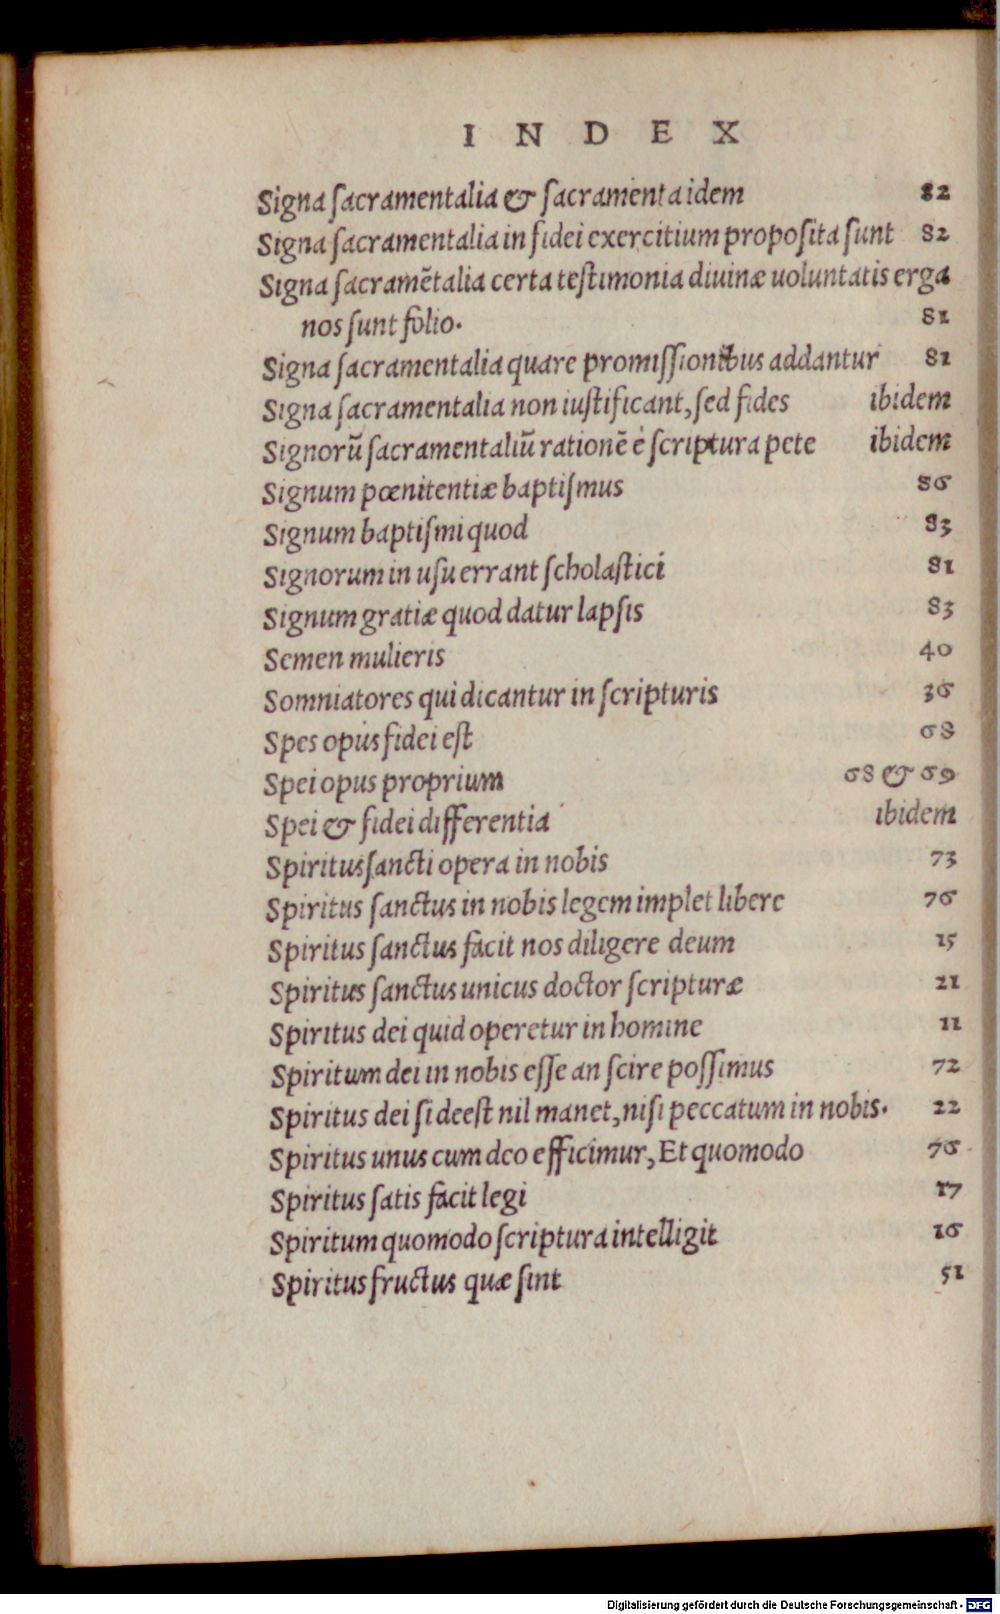 INDEX
Signa ſacramentalia & ſacramenta idem 82
Signa ſacramentalia in fidei exercitium propoſita ſunt 82
Signa ſacramẽtalia certa teſtimonia diuinæ uoluntatis erga
nos ſunt folio. 81
Signa ſacramentalia quare promiſſionibus addantur 81
Signa ſacramentalia non iuſtificant, ſed fides ibidem
Signorũ ſacramentaliũ rationẽ è ſcriptura pete ibidem
Signum pœnitentiæ baptiſmus 86
Signum baptiſmi quod 83
Signorum in uſu errant ſcholaſtici 81
Signum gratiæ quod datur lapſis 83
Semen mulieris 40
Somniatores qui dicantur in ſcripturis 36
Spes opus fidei eſt 68
Spei opus proprium 68 & 69
Spei & fidei differentia ibidem
Spiritus ſancti opera in nobis 73
Spiritus ſanctus in nobis legem implet libere 76
Spiritus ſanctus facit nos diligere deum 15
Spiritus ſanctus unicus doctor ſcripturæ 21
Spiritus dei quid operetur in homine 11
Spiritum dei in nobis eſſe an ſcire poſſimus 72
Spiritus dei ſi deeſt nil manet, niſi peccatum in nobis. 22
Spiritus unus cum deo efficimur, Et quomodo 76
Spiritus ſatis facit legi 17
Spiritum quomodo ſcriptura intelligit 16
Spiritus fructus quæ ſint 51
Digitalisierung gefördert durch die Deutsche Forschungsgemeinschaft - DFG